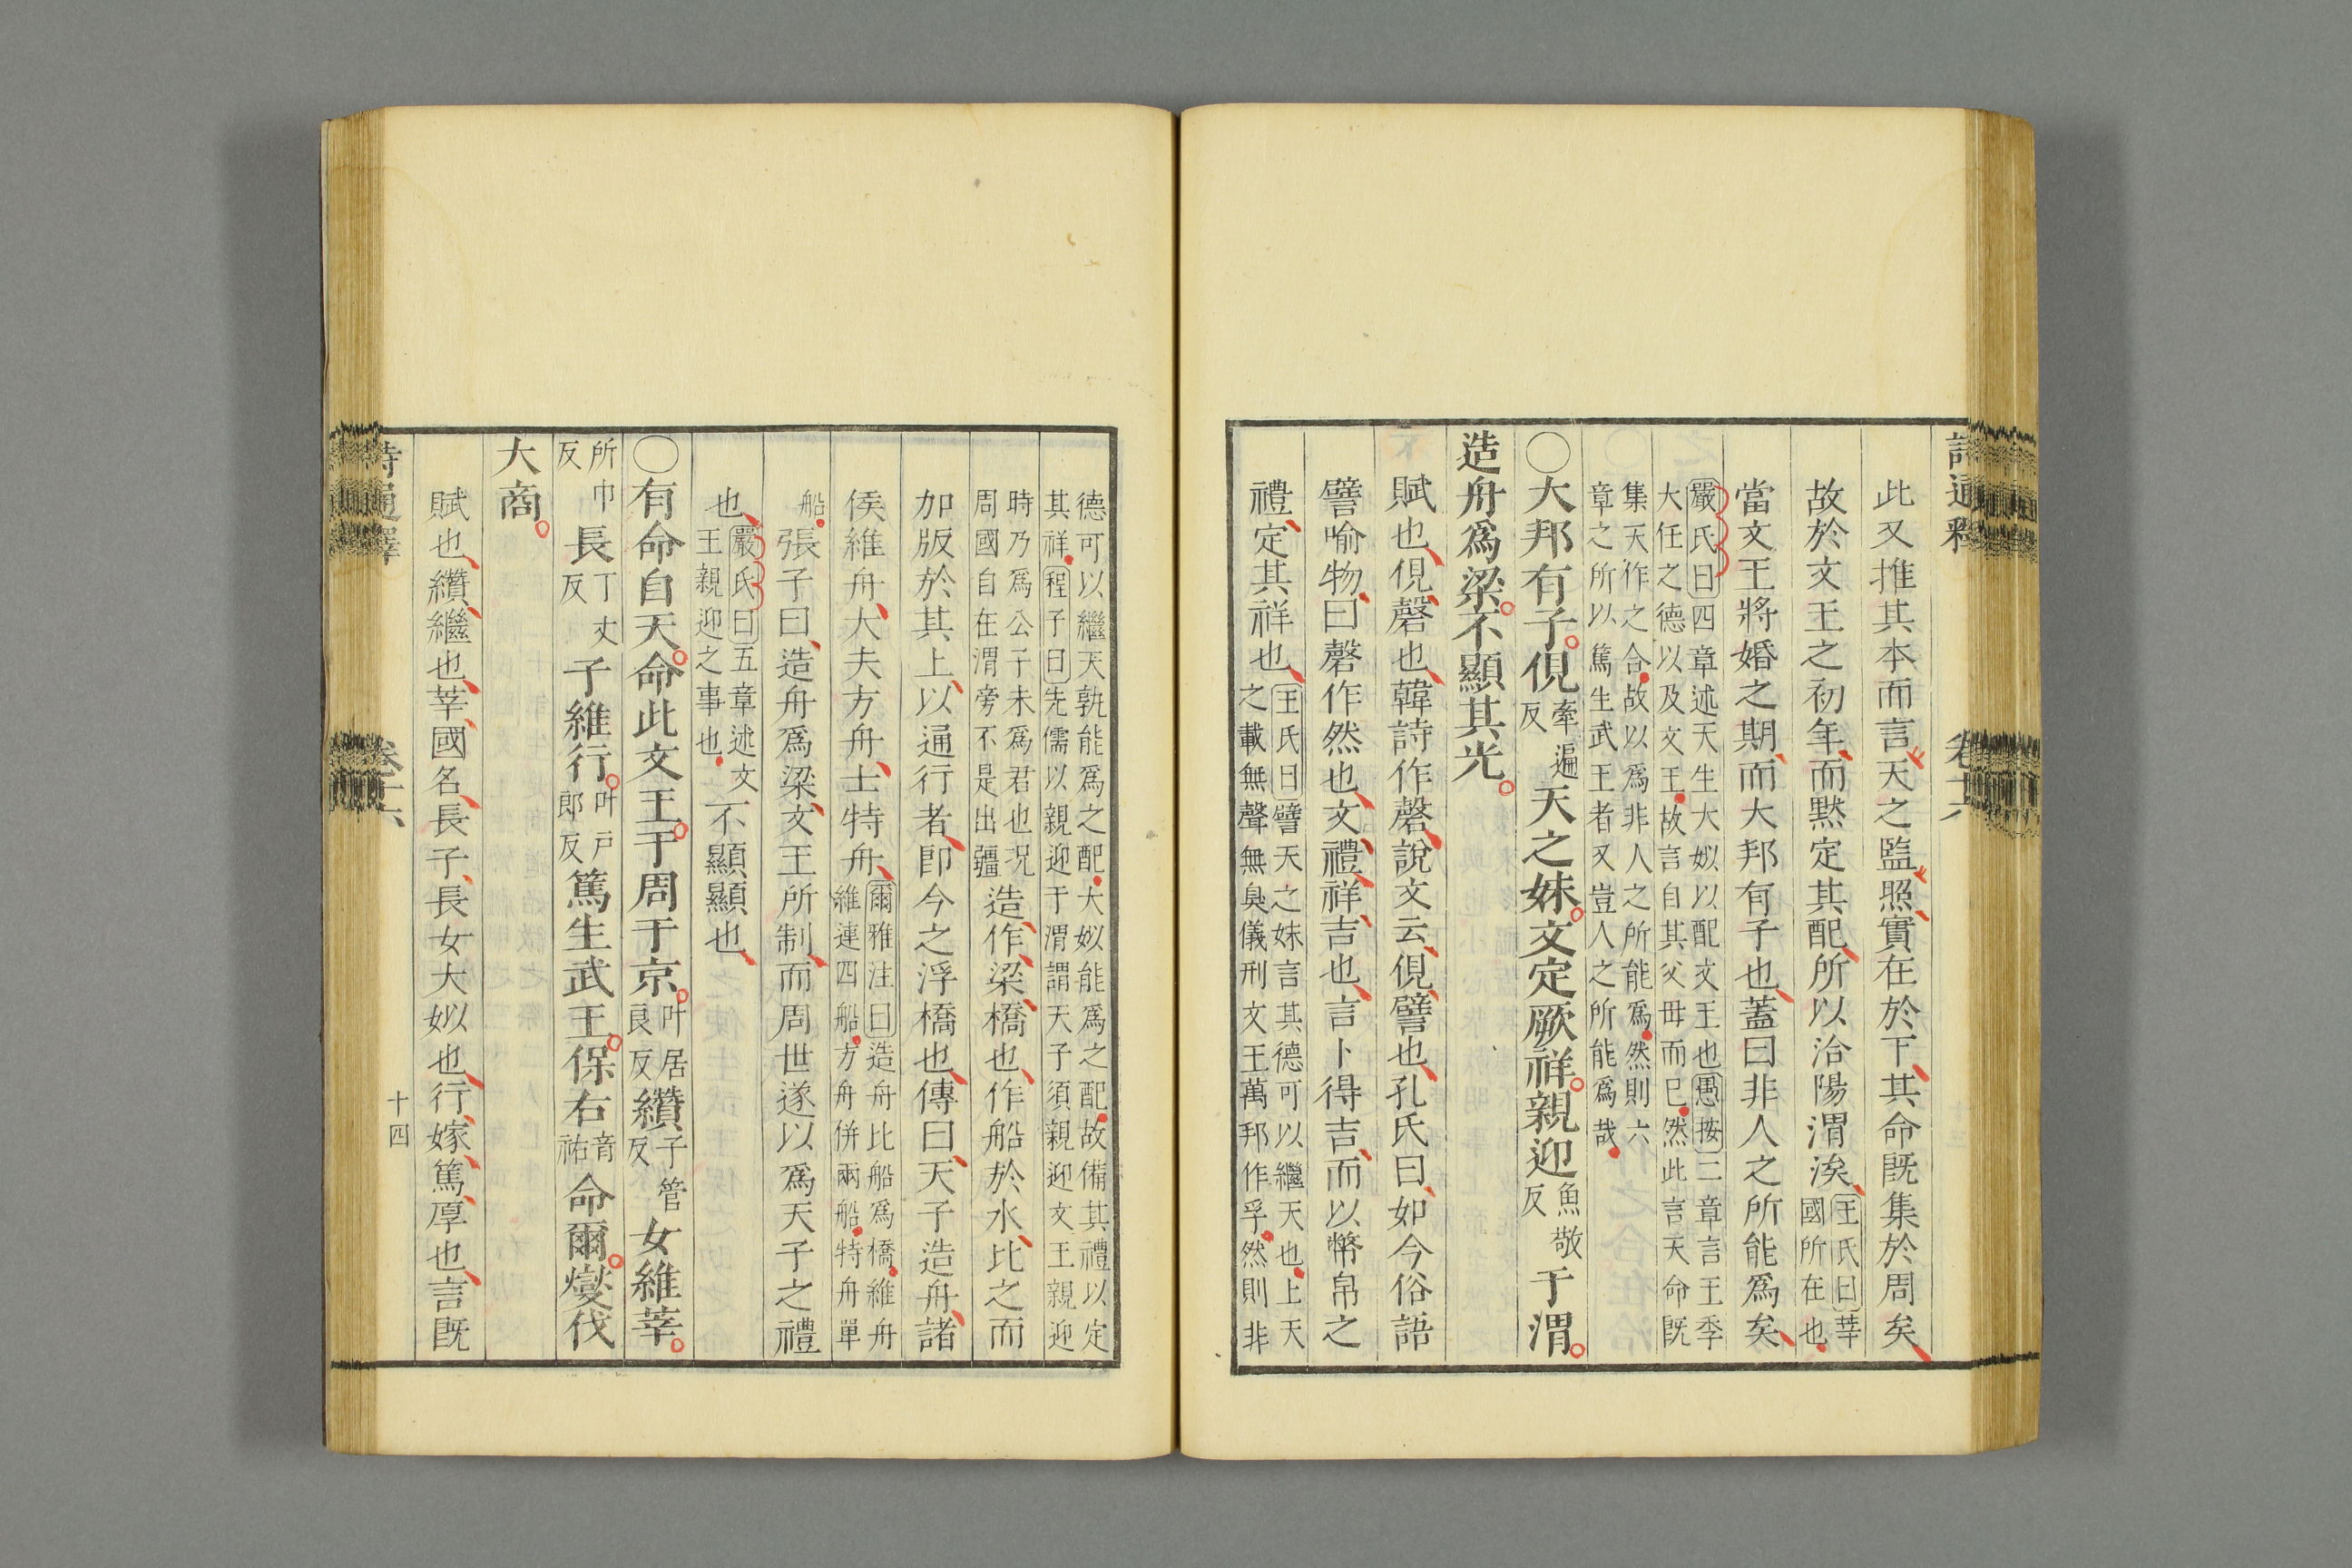 詩通釋 卷十六
此又推其本而言天之監照實在於下其命旣集於周矣
故於文王之初年而黙定其配所以洽陽渭涘王氏曰莘國所在也
當文王將婚之期而大邦有子也蓋曰非人之所能爲矣
嚴氏曰四章述天生大姒以配文王也愚按二章言王季
大任之德以及文王故言自其父母而已然此言天命旣
集天作之合故以爲非人之所能爲然則六
章之所以篤生武王者又豈人之所能爲哉
〇大邦有子俔牽遍反天之妹文定厥祥親迎魚敬反于渭
造舟爲梁不顯其光
賦也俔磬也韓詩作磬說文云俔譬也孔氏曰如今俗語
譬喻物曰磬作然也文禮祥吉也言卜得吉而以幣帛之
禮定其祥也王氏曰譬天之妹言其德可以繼天也上天
之載無聲無臭儀刑文王萬邦作孚然則非
德可以繼天孰能爲之配大姒能爲之配故備其禮以定
其祥程子曰先儒以親迎于渭謂天子須親迎文王親迎
時乃爲公子未爲君也况
周國自在渭旁不是出疆造作梁橋也作船於水比之而
加版於其上以通行者卽今之浮橋也傳曰天子造舟諸
侯維舟大夫方舟士特舟爾雅注曰造舟比船爲橋維舟
維連四船方舟併兩船特舟單
船張子曰造舟爲梁文王所制而周世遂以爲天子之禮
也嚴氏曰五章述文王親迎之事也不顯顯也
〇有命自天命此文王于周于京叶居良反纘子管反女維莘
所巾反長丁丈反子維行叶戸郎反篤生武王保右音祐命爾燮伐
大商
賦也纘繼也莘國名長子長女大姒也行嫁篤厚也言旣
詩通釋 卷十六 十四